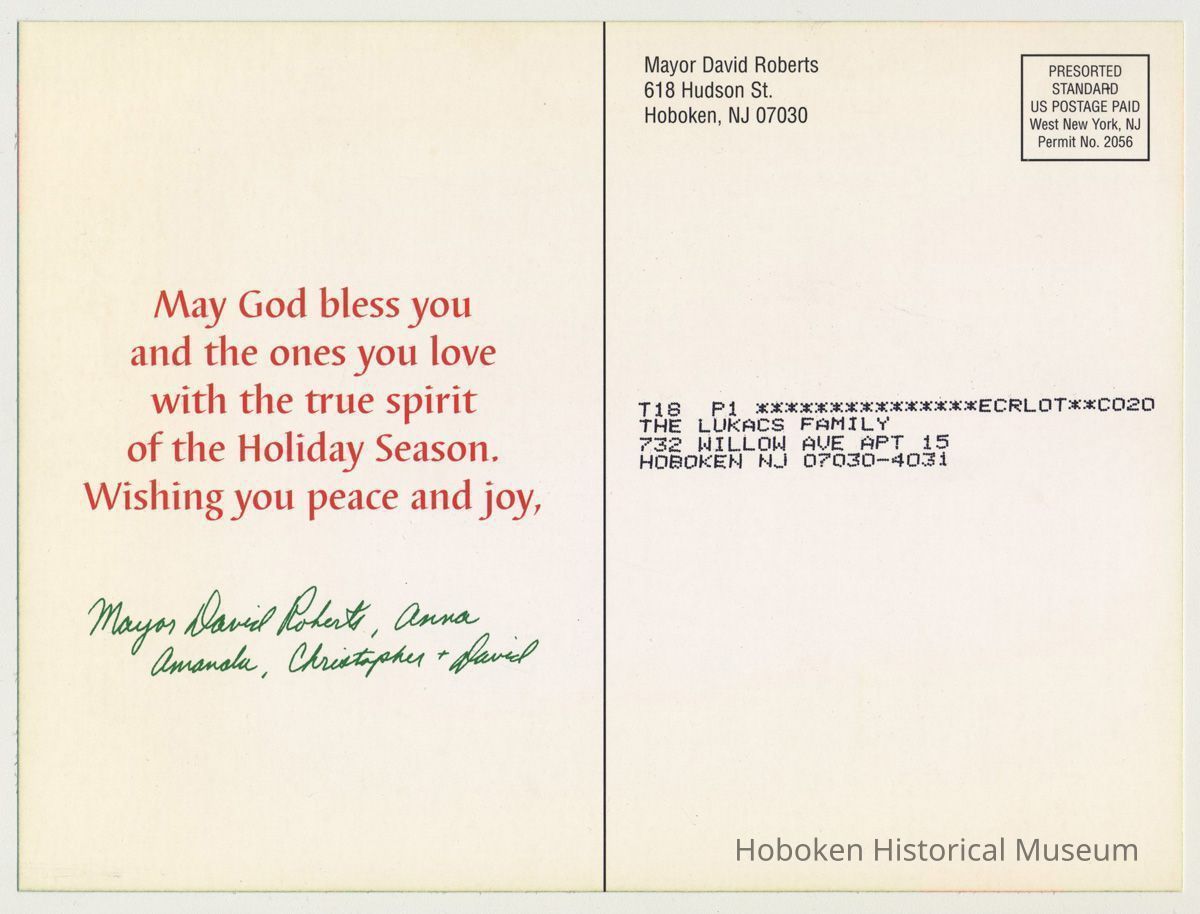 May God bless you
and the ones you love
with the true spirit
of the Holiday Season.
Wishing you peace and joy,
Mayor David Roberts, Anna
Amanda, Christopher + David
Mayor David Roberts
618 Hudson St.
Hoboken, NJ 07030
PRESORTED
STANDARD
US POSTAGE PAID
West New York, NJ
Permit No. 2056
T18 P1 ***************ECRLOT**C020
THE LUKACS FAMILY
732 WILLOW AVE APT 15
HOBOKEN NJ 07030-4031
Hoboken Historical Museum